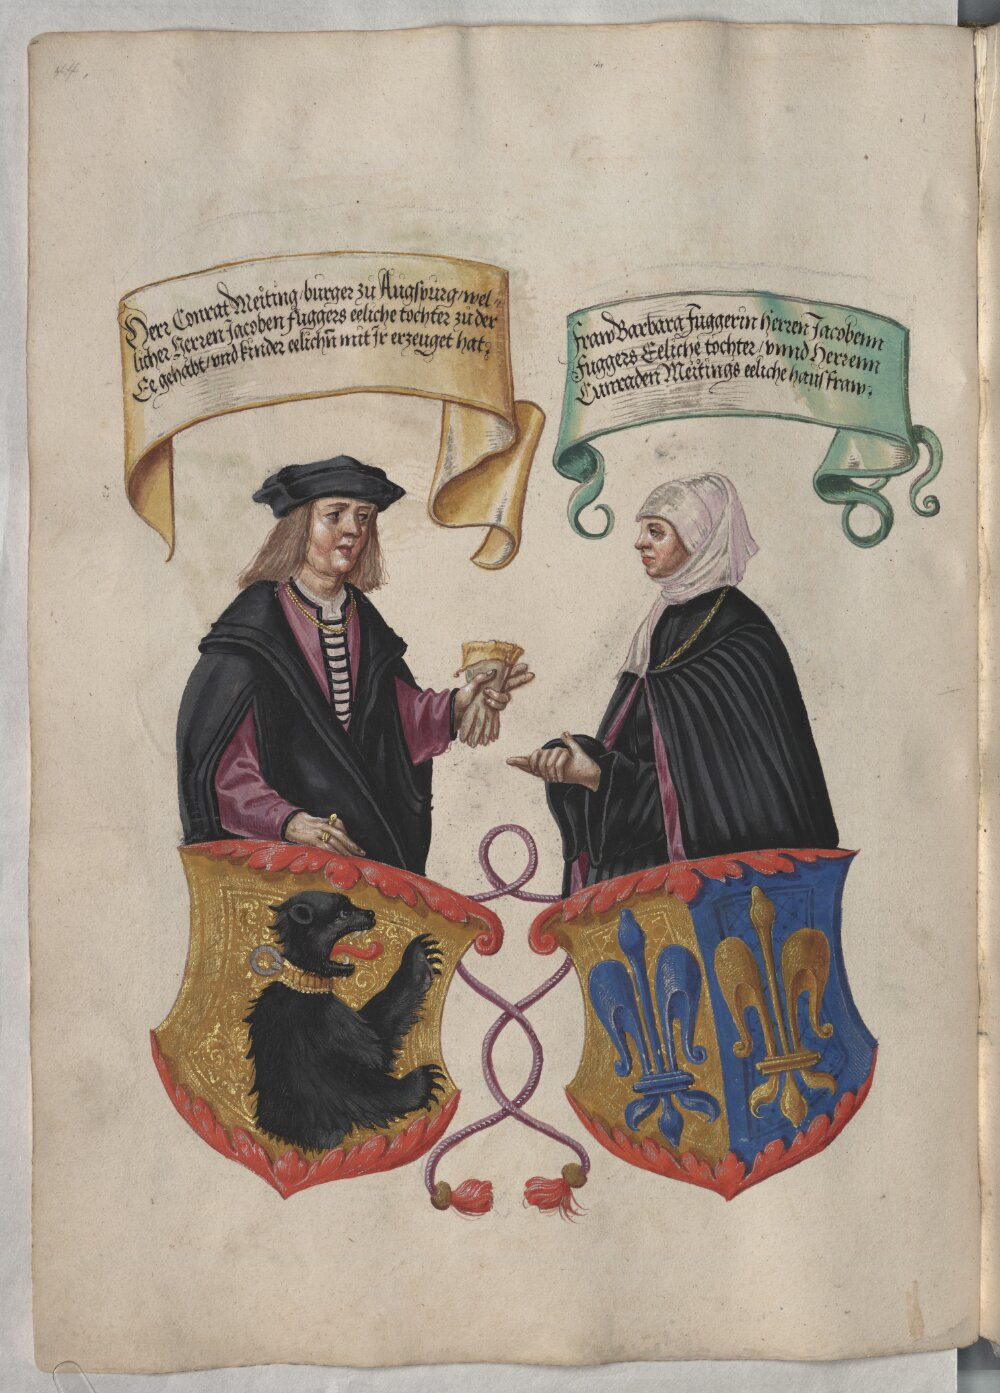 44.
Herr Conrat Meiting / burger zu Augspurg / wel-
licher Herren Jacoben fuggers eeliche tochter zu der
Ee gehabt / vnd kinder eelichn mit Ir erzeuget hat:
fraw Barbara Fuggerin Herren Jacobenn
Fuggers Eeliche tochter / vnnd Herrenn
Cunraden Meitings eeliche hausfraw: